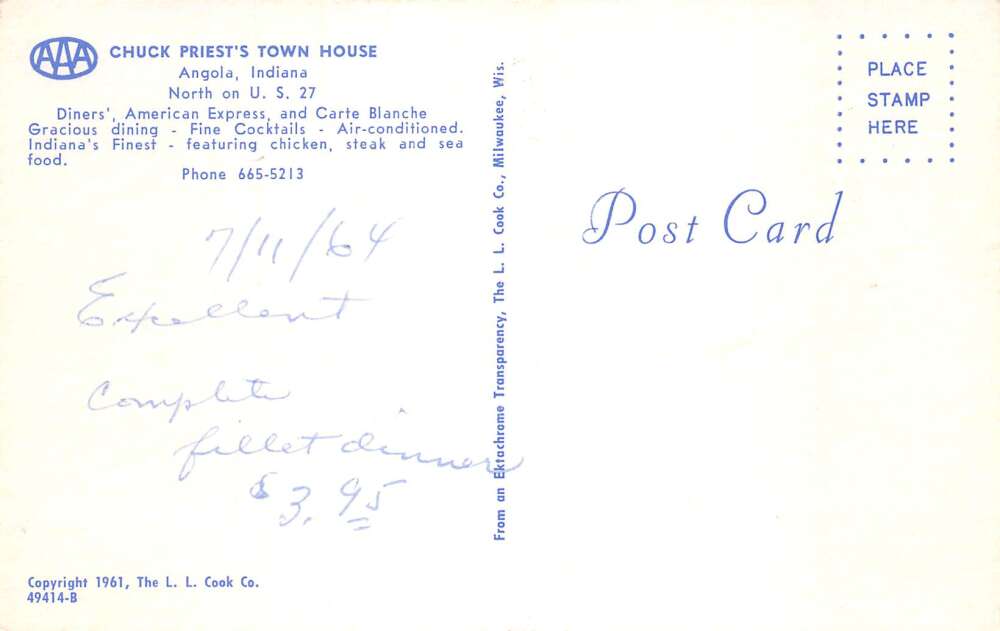 AAA
CHUCK PRIEST'S TOWN HOUSE
Angola, Indiana
North on U. S. 27
Diners', American Express, and Carte Blanche
Gracious dining - Fine Cocktails - Air-conditioned.
Indiana's Finest - featuring chicken, steak and sea
food.
Phone 665-5213
7/11/64
Excellent
Complete
fillet dinner
$3.95
Copyright 1961, The L. L. Cook Co.
49414-B
From an Ektachrome Transparency, The L. L. Cook Co., Milwaukee, Wis.
PLACE
STAMP
HERE
Post Card